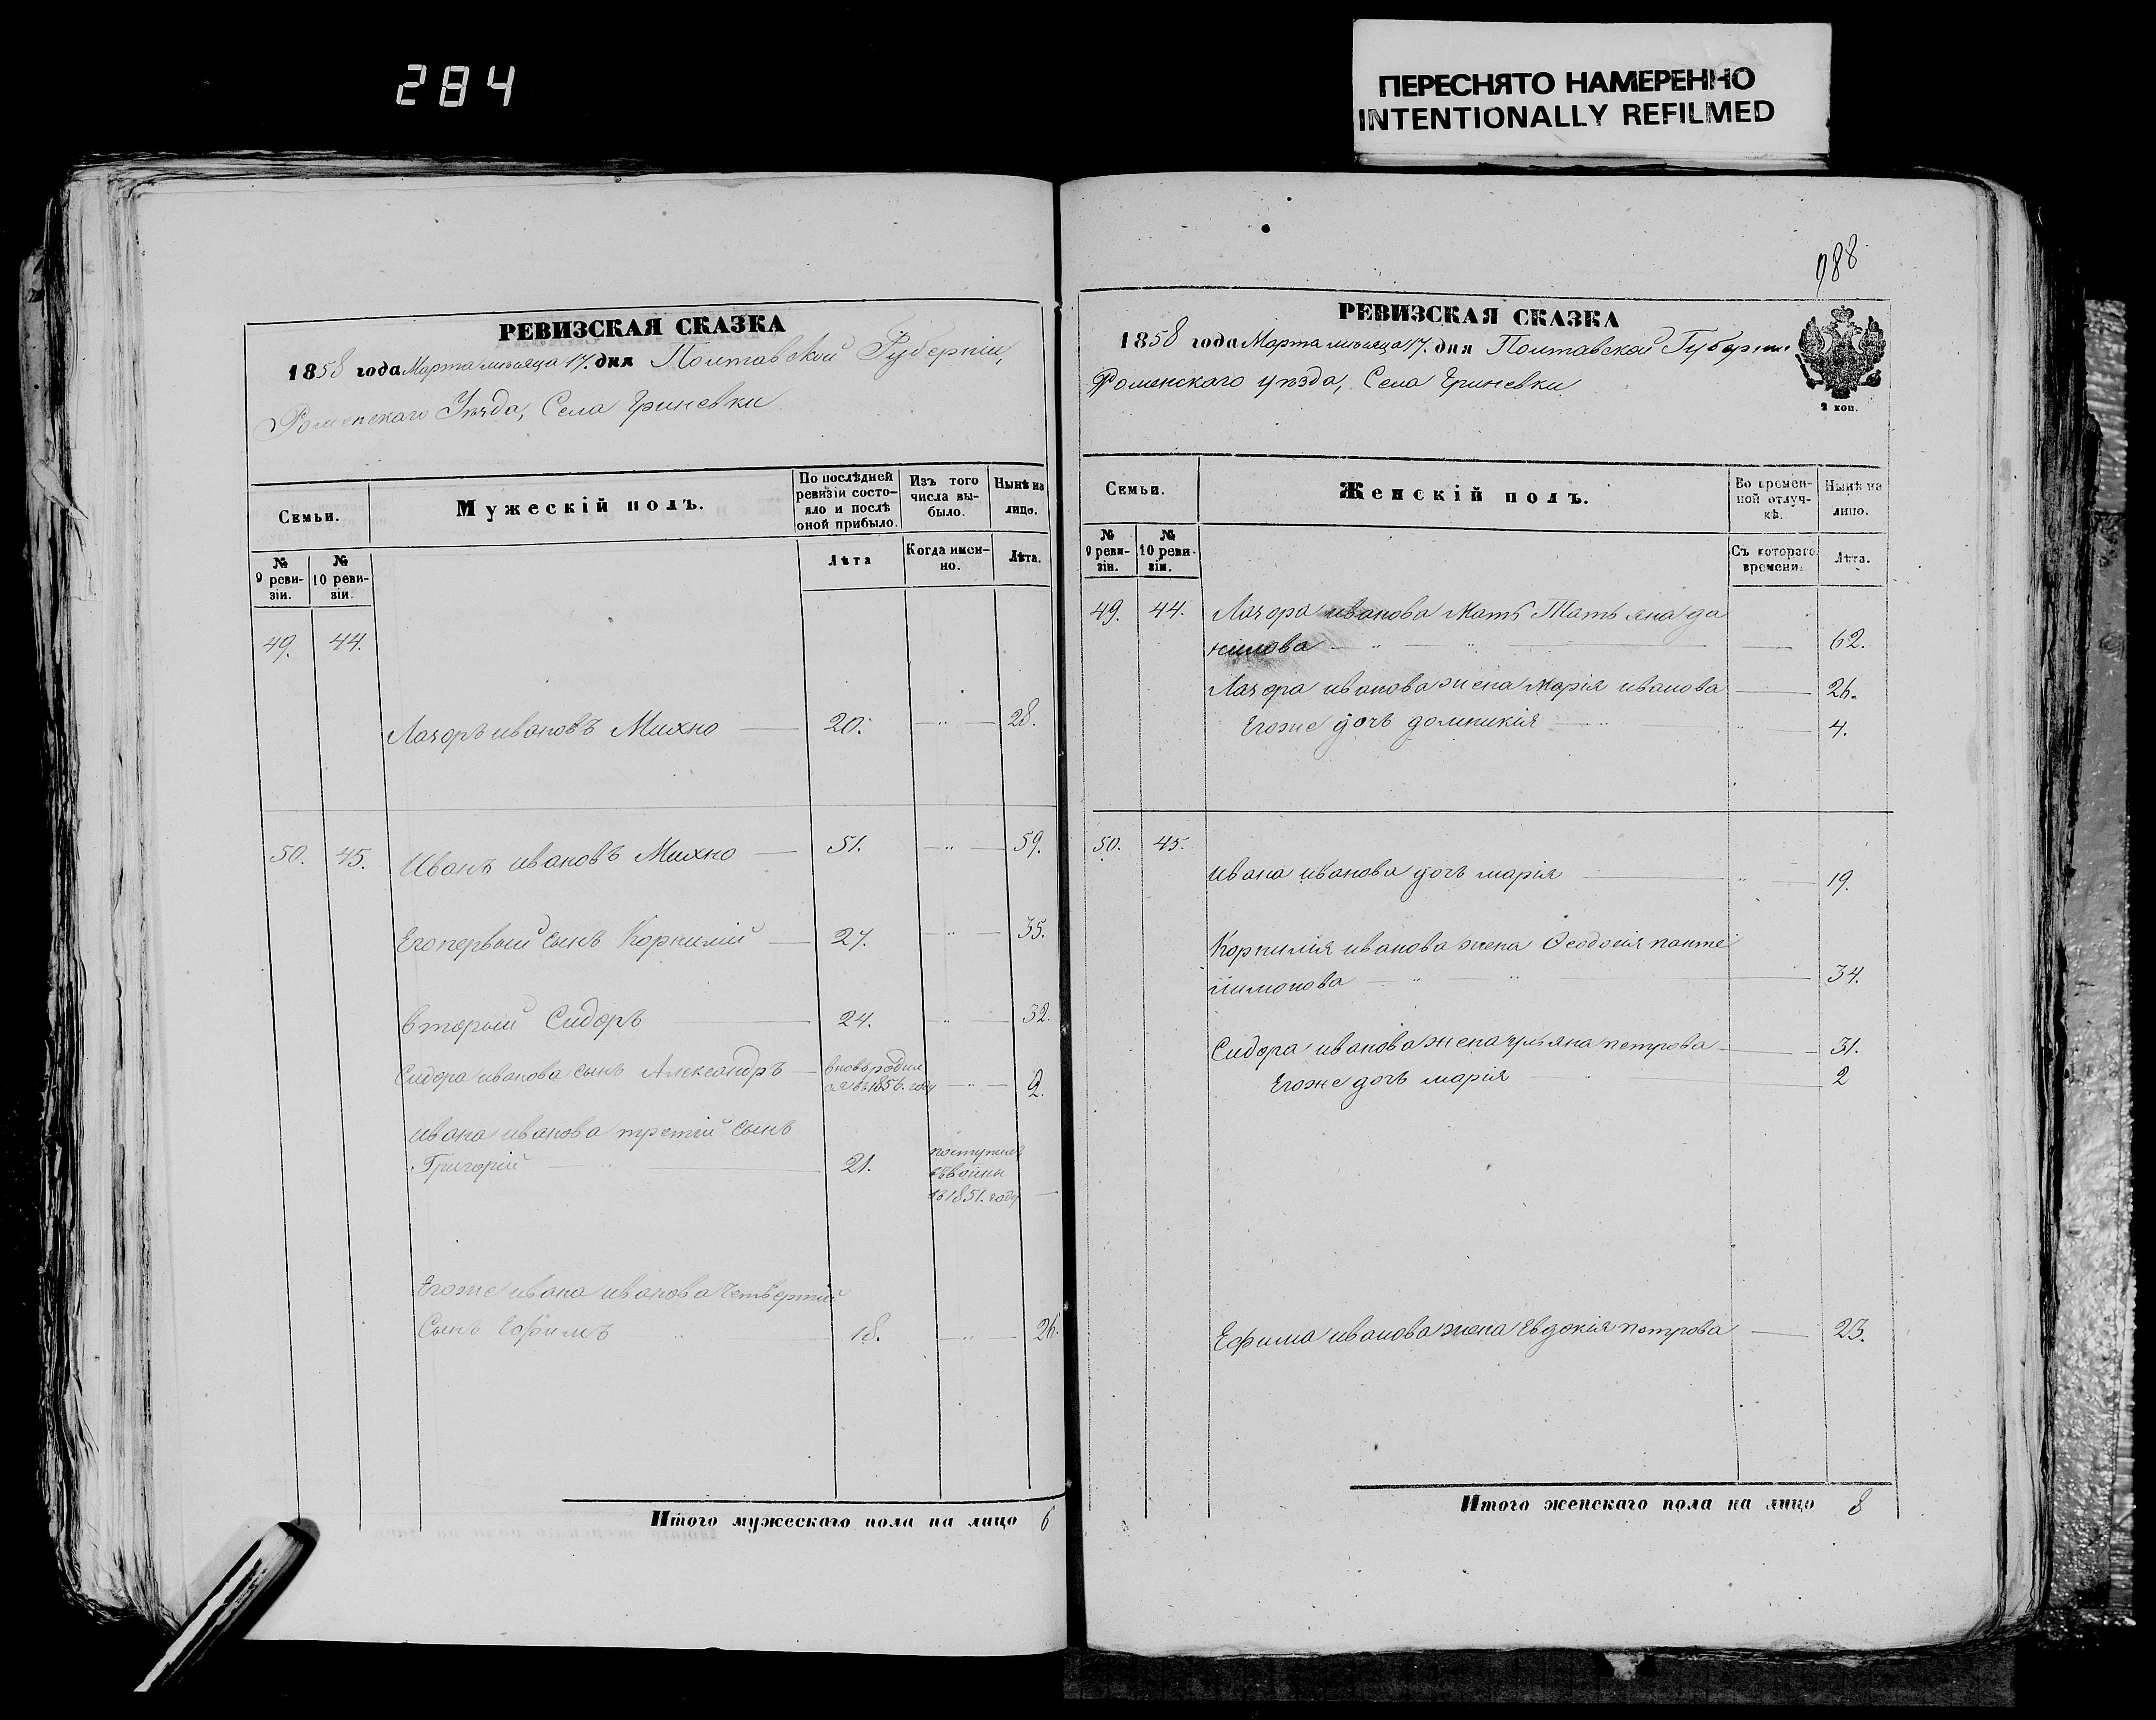 284
ПЕРЕСНЯТО НАМЕРЕННО
INTENTIONALLY REFILMED
РЕВИЗСКАЯ СКАЗКА
1858 года Марта месяца 17. дня Полтавской Губерніи,
Роменскаго Уезда, Села Гриневки
Семьи.
Мужескій полъ.
По послѣдней ревизіи состо-
яло и послѣ
оной прибыло.
Изъ того
числа вы-
было.
Нынѣ на
лицо.
№
9 реви-
зіи.
№
10 реви-
зіи.
Лѣта
Когда имен-
но.
Лѣта.
49. 44.
Лазоръ ивановъ Михно 20. 28.
50. 45. Иванъ ивановъ Михно 51. 59.
Его первый сынъ Корнилій 27. 35.
вторый Сидоръ 24. 32.
Сидора иванова сынъ Александръ вновь родил
ся въ 1856. году 2.
ивана иванова третій сынъ
Григорій 21. поступилъ
въ 1851. году
Егоже ивана иванова четвертій
Сынъ Ефимъ 18. 26.
Итого мужескаго пола на лицо 6
988
РЕВИЗСКАЯ СКАЗКА
1858 года Марта месяца 17. дня Полтавской Губерніи
Роменскаго уезда, Села Гриневки
2 коп.
Семьи.
Женскій полъ.
Во времен-
ной отлуч-
кѣ.
Нынѣ на
лицо.
№
9 реви-
зіи.
№
10 реви-
зіи.
Съ котораго
времени.
Лѣта.
49. 44. Лазора иванова Мать Татьяна да
нилова 62.
Лазора иванова жена Марія иванова 26.
Егоже дочь домникія 4.
50. 45.
ивана иванова дочь марія 19.
Корнилія иванова жена Феодосія панте
лимонова 34.
Сидора иванова жена ульяна петрова 31.
Егоже дочь марія 2
Ефима иванова жена Евдокія петрова 23.
Итого женскаго пола на лицо 8